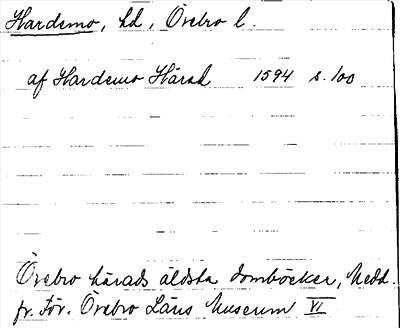 Hardemo, hd, Örebro l.
af Hardemo Härad 1594 s. 100
Örebro härads äldsta domböcker, Medd.
fr. För. Örebro Läns Museum VI